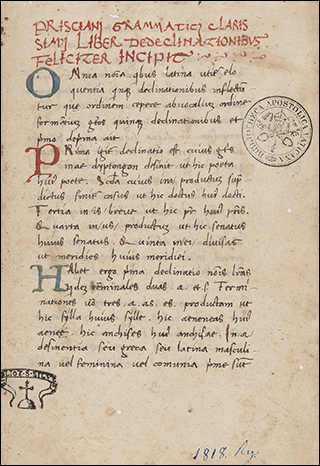 PRISCIANI GRAMMATICI CLARIS
SIMI LIBER DE DECLINATIONIBVS
FELICITER INCIPIT
Omnia noīa qbus latina utiť elo
quentia qnq declinationibus inflectū
tur que ordinem cepere abuocaliū ordine
formātiū gtōs quinq declinationibus et
pmo deprna aut
Prima igiť declinatio est cuius gtūs
inae dyptongon desinit ut hic poeta
huiꝰ poete. Scda cuius in i productus sup
dictus finit casus ut hic doctus huiꝰ docti.
Tertia in is breuē ut hic pr̄ huiꝰ pris.
Quarta in us productus ut hic senatus
huius senatus. Quinta in ei diuisas
ut meridies huius meridiei.
Habet ergo pma declinatio nōis lrās
qdez terminales duas .a. et .s. Termi
nationes uō tres .a. as. es. productam ut
hic sylla huius sylle. hic aeneas huiꝰ
aenee. hic anchises huiꝰ anchise. In .a.
desinentia seu greca seu latina masculi
na uel feminina uel comunia pme sūt
BIBLIOTHECA APOSTOLICA VATICANA
1818. Reg.